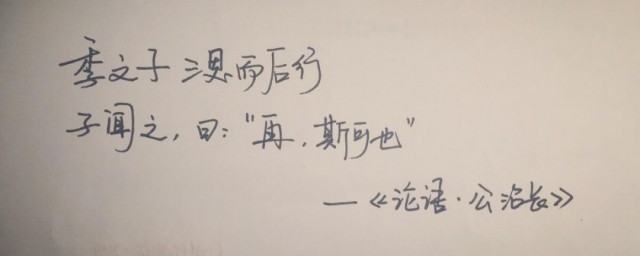 季文子三思而后行
子闻之，曰：“再，斯可也”
—《论语·公冶长》